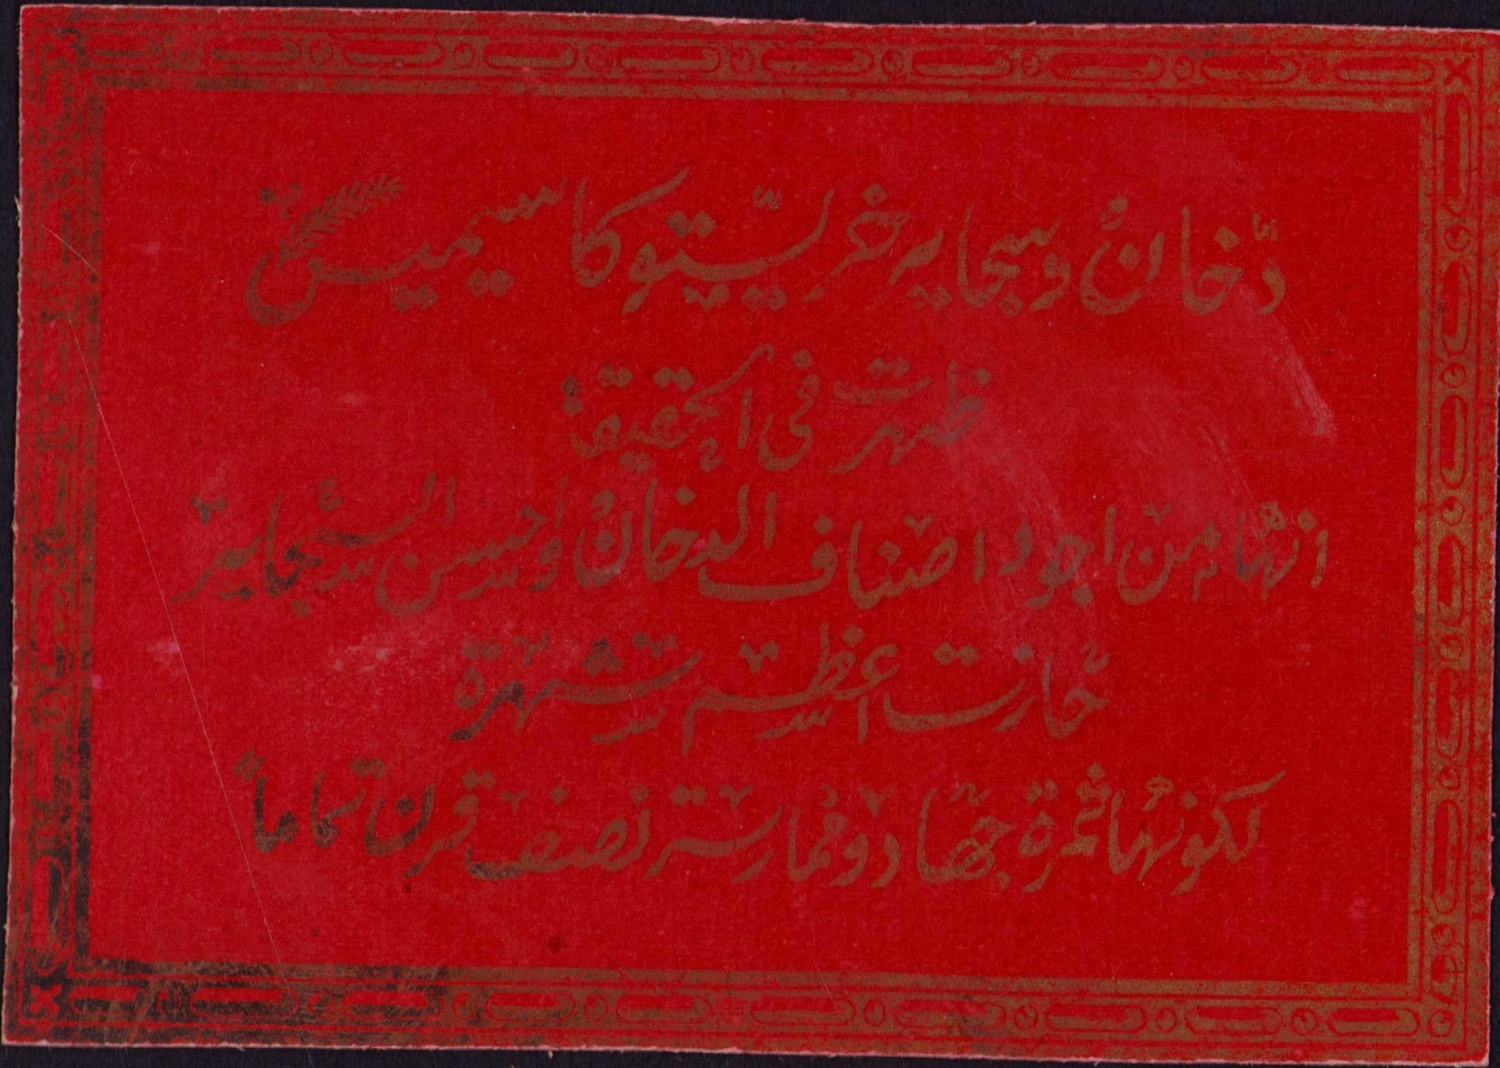 دخان وسجاير خريستو كاسيميس
ظهرت فى الحقيقة
انها من اجود اصناف الدخان واحسن السجاير
حازت اعظم شهرة
لكونها ثمرة جهاد وممارسة نصف قرن تماماً